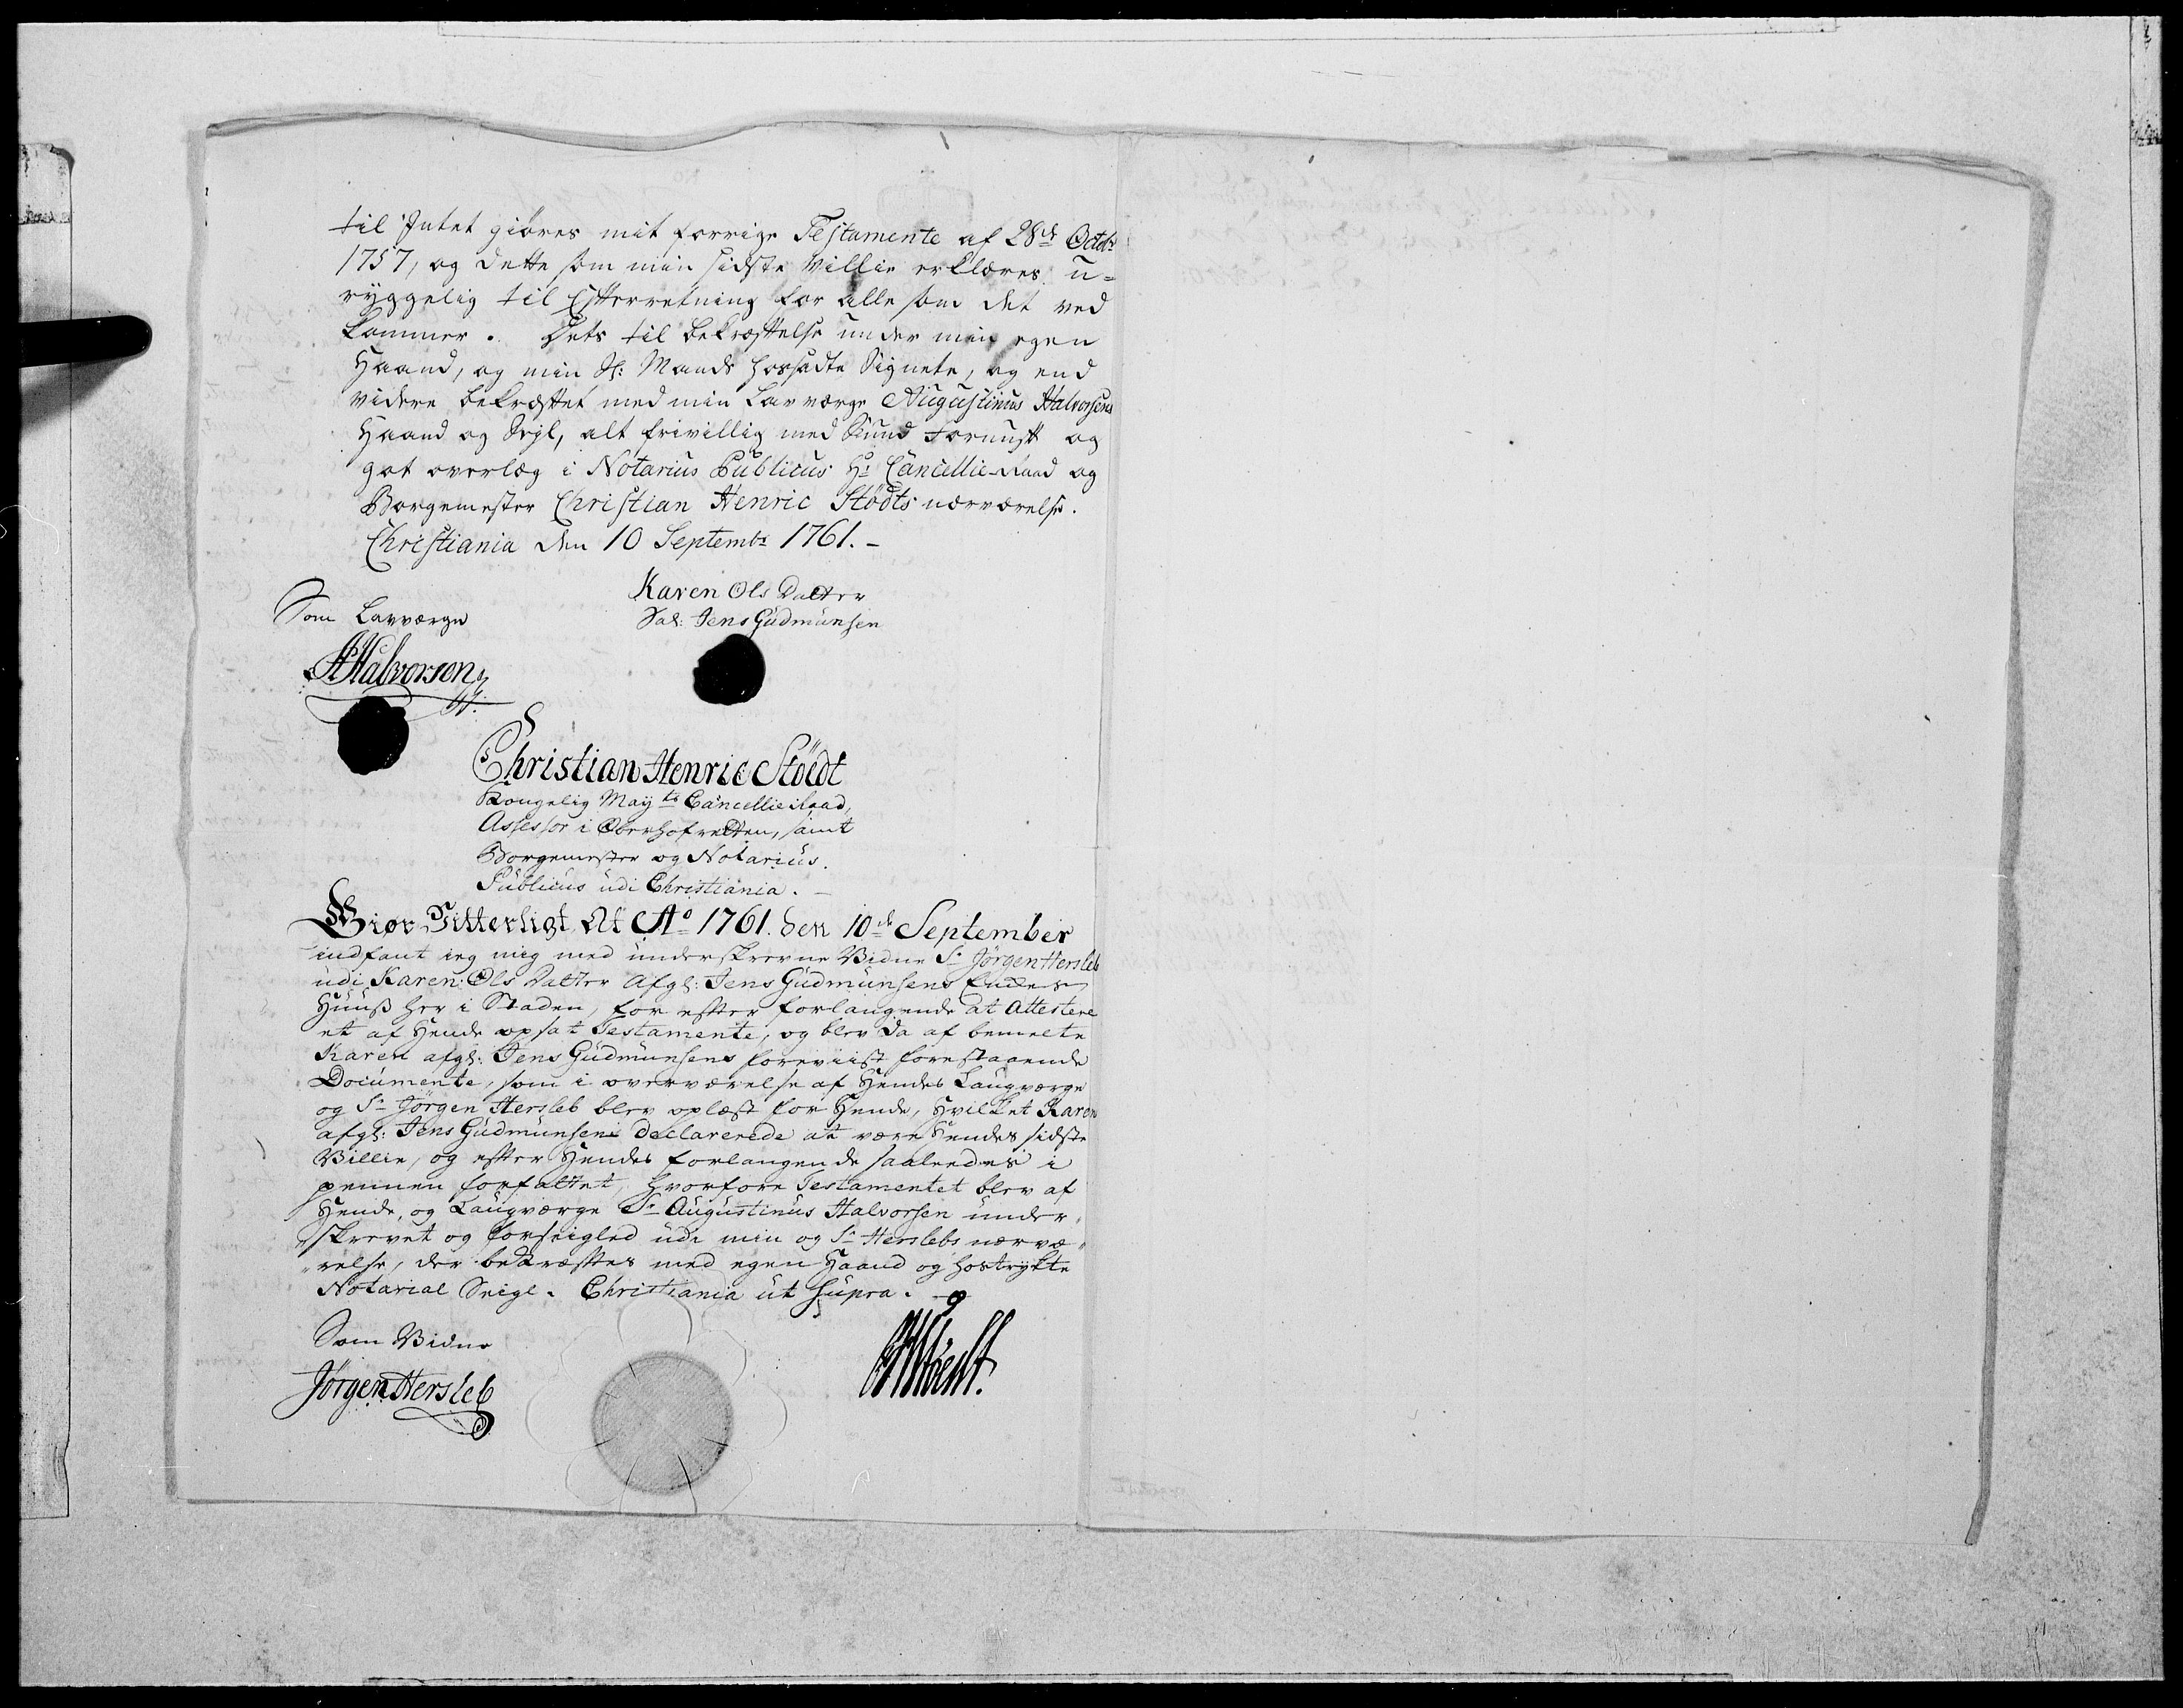 til Intet giøres mit forrige Testamente af 28de Octobr
1757, og dette som min sidste Villie erklæres u=
ryggelig til Efterretning for alle som det ved
kommer. Dets til bekræftelse under min egen
Haand, og min Sl: Mands hossadte Signete, og end
videre bekræftet med min Lavværge Augustinus Halvorsens
Haand og Segl, alt frivillig med Sund Fornuft og
got overlæg i Notarius Publicus Hr Cancellie-Raad og
Borgemester Christian Henric Stödts nærværelse.
Christiania den 10 Septembr 1761.-
Karen Ols Datter
Sal: Jens Gudmunsen
Som Lavværge
AHalvorsen
Christian Henric Stöedt
Kongelig Mayts Cancellie Raad,
Assessor i Oberhofretten, samt
Borgemester og Notarius
Publicus udi Christiania. -
Giør Vitterligt At Ao 1761. den 10de September
indfant ieg mig med underskrevne Vidne Sr Jörgen Hersleb
udi Karen Ols Datter Afgl: Jens Gudmunsens Enkes
Huuss her i Staden, for efter forlangende at Attestere
ett af Hende opsat Testamente, og blev da af bemelte
Karen afgl: Jens Gudmunsens foreviist forestaaende
Documente, som i overværelse af Hendes Laugværge
og Sr Jörgen Hersleb blev oplæst for Hende, Hvilket Karen
afgl: Jens Gudmunsens declarerede at være Hendes sidste
Villie, og efter Hendes forlangende saaledes i
pennen forfattet, hvorfore Testamentet blev af
Hende, og Laugværge Sr Augustinus Halvorsen under„
„skrevet og forseigled udi min og Sr Herslebs nærvæ„
„relse, der bekræftes med egen Haand og hostrykte
Notarial Seigl. Christiania ut supra.
Som Vidne
Jörgen Hersleb
CHStöedt.